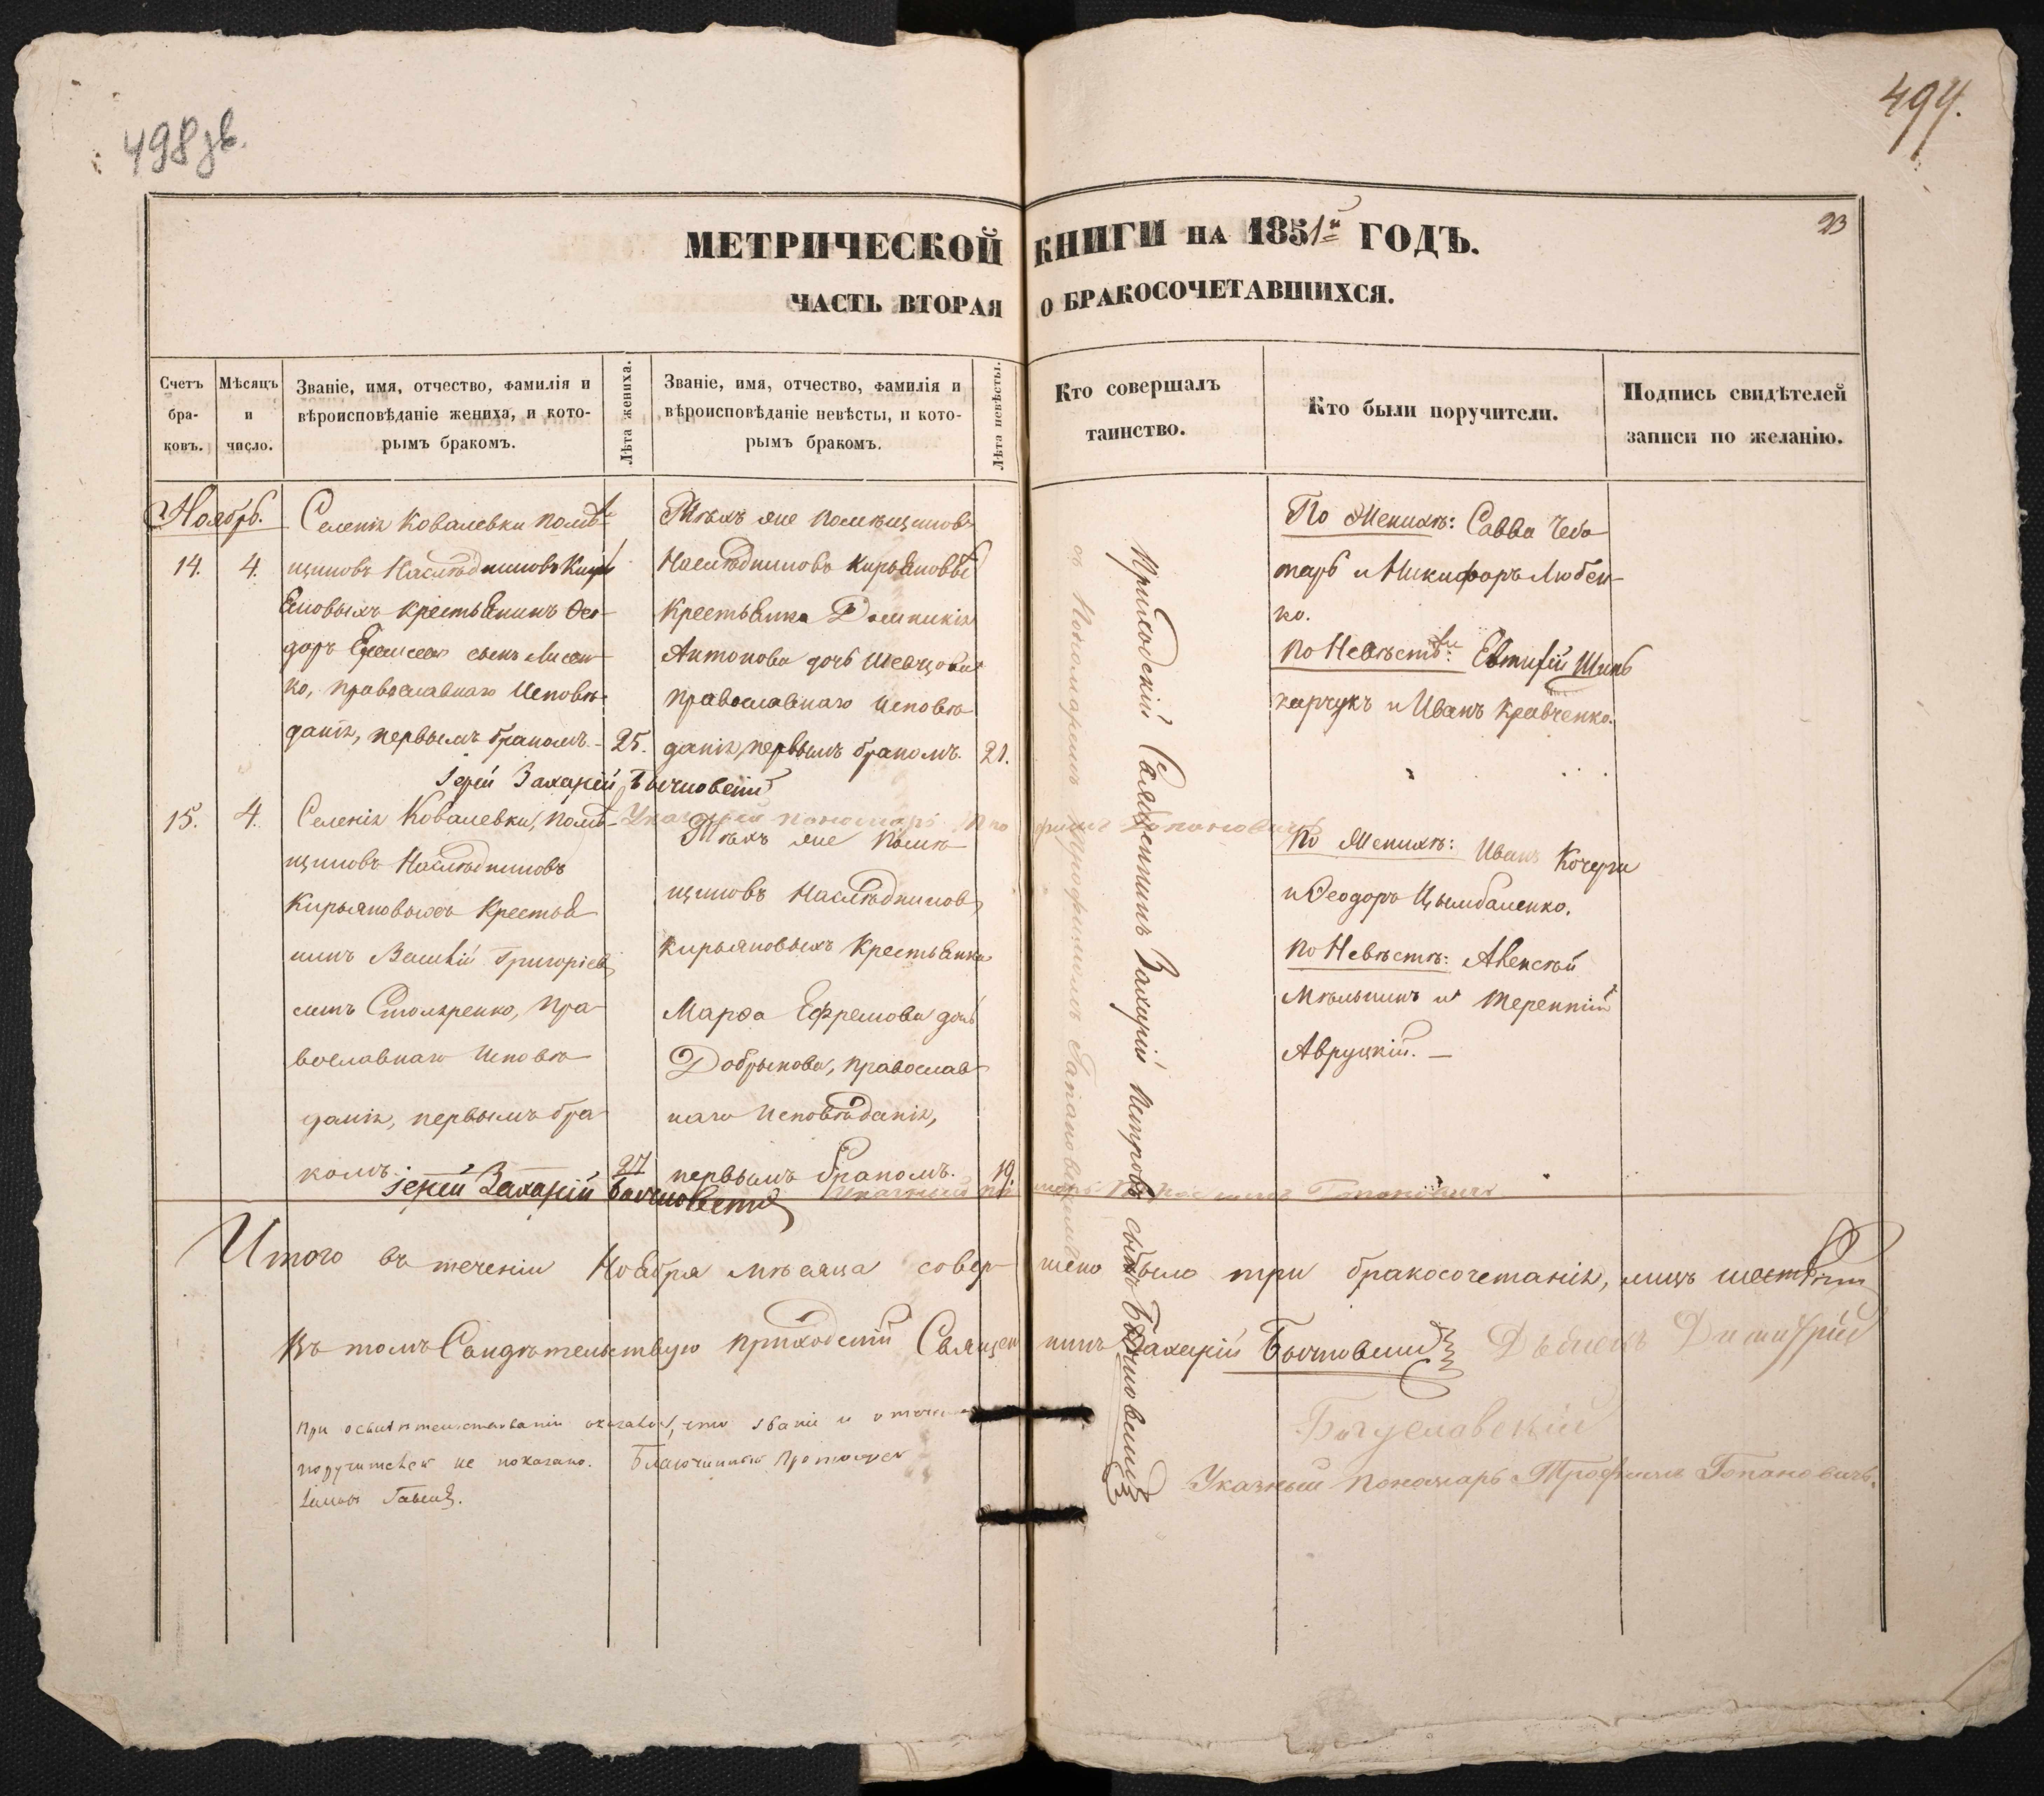 498 зв.
499.
23
МЕТРИЧЕСКОЙ КНИГИ НА 1851й ГОДЪ.
ЧАСТЬ ВТОРАЯ О БРАКОСОЧЕТАВШИХСЯ.
Счетъ бра-ковъ.
Мѣсяцъ и число.
Званіе, имя, отчество, фамилія и
вѣроисповѣданіе жениха, и кото-
рымъ бракомъ.
Лѣта жениха.
Званіе, имя, отчество, фамилія и
вѣроисповѣданіе невѣсты, и кото-
рымъ бракомъ.
Лѣта невѣсты.
Кто совершалъ
таинство.
Кто были поручители.
Подпись свидѣтелей
записи по желанію.
Ноябрь.
14. 4.
Селенія Ковалевки помѣ-
щиковъ Наслѣдниковъ Кирь
яновыхъ крестьянинъ Ѳео-
доръ сынъ Лисен-
ко, православнаго Исповѣ-
данія, первымъ бракомъ. 25.
Тѣхъ же Помѣщиковъ
Наслѣдниковъ Кирьяновыхъ
крестьянка Домникія
Антонова дочь Шевцова
православнаго исповѣ-
данія, первымъ бракомъ. 21.
Іерей Захарій Бычковскій
Указный пономарь Трофимъ Гопановичъ
По Женихѣ: Савва Чебо
тарь и Никифоръ Любен-
ко.
по Невѣстѣ: Евтифій Шин
карчукъ и Иванъ Кравченко.
15. 4.
Селенія Ковалевки, помѣ-
щиковъ Наслѣдниковъ
Кирьяновыхъ Крестья
нинъ Василій Григоріевъ
сынъ Столяренко, пра-
вославнаго Исповѣ-
данія, первымъ бра-
комъ. 27
Тѣхъ же Помѣ-
щиковъ Наслѣдниковъ
Кирьяновыхъ Крестьянка
Марѳа Ефремова дочь
Добрынова, православ-
наго Исповѣданія,
первымъ бракомъ. 19.
Іерей Захарій Бычковскій
Указный пономарь Трофимъ Гопановичъ
По Женихѣ: Иванъ Кочерга
и Ѳеодоръ Цымбаленко.
по Невѣстѣ: Алексѣй
Мѣльникъ и Терентій
Авруцкій.
Приходскій Священникъ Захарій Петровъ сынъ Бычковскій
съ Пономаремъ Трофимомъ Гапановичемъ
Итого въ теченіи Ноября мѣсяца совершено было три бракосочетанія, лицъ шесть
Въ томъ Свидѣтельствую Приходскій Священникъ Захарій Бычковскій Дьяконъ Димитрій
Богуславскій
Указный пономарь Трофимъ Гопановичъ.
При освидѣтельствованіи оказалось, что званіе и отчество
поручителей не показано. Благочинный Протоіерей